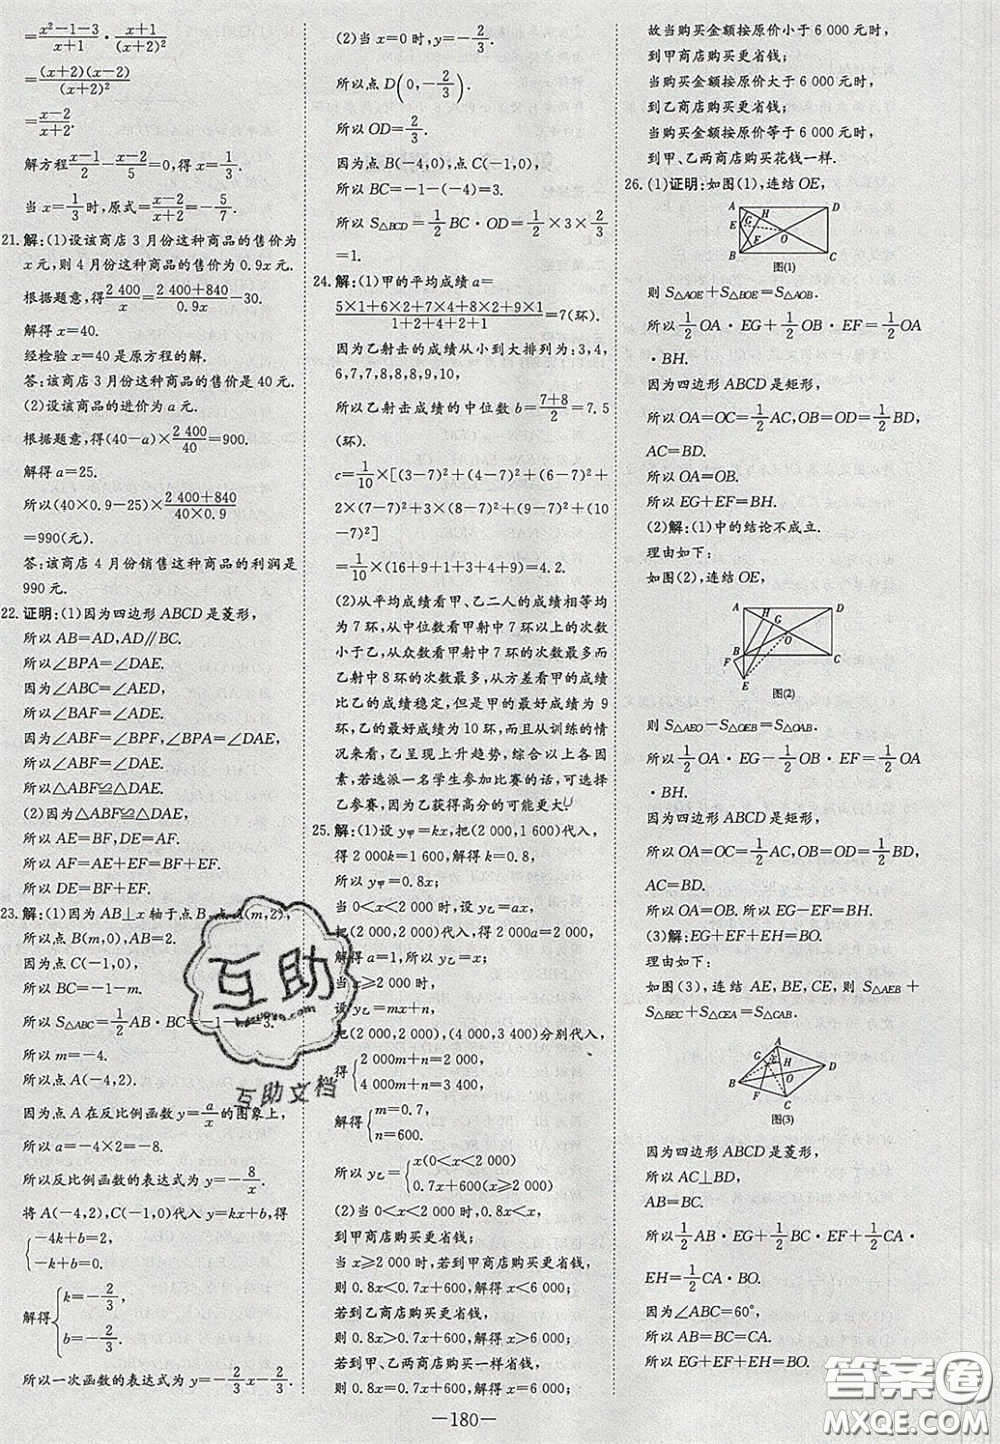 =\frac{x²-1-3}{x+1}·\frac{x+1}{(x+2)²}
=\frac{(x+2)(x-2)}{(x+2)²}
=\frac{x-2}{x+2}.
解方程\frac{x-1}{2}-\frac{x-2}{5}=0,得 x=\frac{1}{3}.
当 x=\frac{1}{3}时,原式=\frac{x-2}{x+2}=-\frac{5}{7}.
21.解:(1)设该商店 3 月份这种商品的售价为
x元,则 4 月份这种商品的售价为 0.9x 元.
根据题意,得\frac{2 400}{x}=\frac{2 400+840}{0.9x}-30.
解得 x=40.
经检验 x=40 是原方程的解.
答:该商店 3 月份这种商品的售价是 40 元.
(2)设该商品的进价为 a 元.
根据题意,得(40-a)×\frac{2 400}{40}=900.
解得 a=25.
所以(40×0.9-25)×\frac{2 400+840}{40×0.9}
=990(元).
答:该商店 4 月份销售这种商品的利润是
990 元.
22.证明:(1)因为四边形 ABCD 是菱形,
所以 AB=AD,AD∥BC.
所以∠BPA=∠DAE.
因为∠ABC=∠AED,
所以∠BAF=∠ADE.
因为∠ABF=∠BPF,∠BPA=∠DAE,
所以∠ABF=∠DAE.
所以△ABF≌△DAE.
(2)因为△ABF≌△DAE,
所以 AE=BF,DE=AF.
所以 AF=AE+EF=BF+EF.
所以 DE=BF+EF.
23.解:(1)因为 AB⊥x 轴于点 B,点 A(m,2),
所以点 B(m,0),AB=2.
因为点 C(-1,0),
所以 BC=-1-m.
所以 S△ABC=\frac{1}{2}AB·BC=-1-m=3.
所以 m=-4.
所以点 A(-4,2).
因为点 A 在反比例函数 y=\frac{a}{x}的图象上,
所以 a=-4×2=-8.
所以反比例函数的表达式为 y=-\frac{8}{x}.
将 A(-4,2),C(-1,0)代入 y=kx+b,得
{-4k+b=2,
-k+b=0.
解得{k=-\frac{2}{3},
b=-\frac{2}{3}.
所以一次函数的表达式为 y=-\frac{2}{3}x-\frac{2}{3}.
(2)当 x=0时,y=-\frac{2}{3}.
所以点 D(0,-\frac{2}{3}).
所以 OD=\frac{2}{3}.
因为点 B(-4,0),点 C(-1,0),
所以 BC=-1-(-4)=3.
所以 S△BCD=\frac{1}{2}BC·OD=\frac{1}{2}×3×\frac{2}{3}
=1.
24.解:(1)甲的平均成绩 a=
\frac{5×1+6×2+7×4+8×2+9×1}{1+2+4+2+1}=7(环).
因为乙射击的成绩从小到大排列为:3,4,
6,7,7,8,8,8,9,10,
所以乙射击成绩的中位数 b=\frac{7+8}{2}=7.5
(环).
c=\frac{1}{10}×[(3-7)²+(4-7)²+(6-7)²+
2×(7-7)²+3×(8-7)²+(9-7)²+(10
-7)²]
=\frac{1}{10}×(16+9+1+3+4+9)=4.2.
(2)从平均成绩看甲、乙二人的成绩相等均
为 7 环,从中位数看甲射中 7 环以上的次数
小于乙,从众数看甲射中 7 环的次数最多而
乙射中 8 环的次数最多,从方差看甲的成绩
比乙的成绩稳定,但是甲的最好成绩为 9
环,乙的最好成绩为 10 环,而且从训练的情
况来看,乙呈现上升趋势,综合以上各因
素,若选派一名学生参加比赛的话,可选择
乙参赛,因为乙获得高分的可能更大.
25.解:(1)设 y甲=kx,把(2 000,1 600)代入,
得 2 000k=1 600,解得 k=0.8,
所以 y甲=0.8x;
当 0<x<2 000 时,设 y乙=ax,
把(2 000,2 000)代入,得 2 000a=2 000,
解得 a=1,所以 y乙=x;
当 x≥2 000 时,
设 y乙=mx+n,
把(2 000,2 000),(4 000,3 400)分别代入,
得{2 000m+n=2 000,
4 000m+n=3 400.
解得{m=0.7,
n=600.
所以 y乙={x(0<x<2 000)
0.7x+600(x≥2 000)
(2)当 0<x<2 000 时,0.8x<x,
到甲商店购买更省钱;
当 x≥2 000 时,若到甲商店购买更省钱,
则 0.8x<0.7x+600,解得 x<6 000;
若到乙商店购买更省钱,
则 0.8x>0.7x+600,解得 x>6 000;
若到甲、乙两商店购买一样省钱,
则 0.8x=0.7x+600,解得 x=6 000;
故当购买金额按原价小于 6 000 元时,
到甲商店购买更省钱;
当购买金额按原价大于 6 000 元时,
到乙商店购买更省钱;
当购买金额按原价等于 6 000 元时,
到甲、乙两商店购买花钱一样.
26.(1)证明:如图(1),连结 OE,
A H D G O E F B C
图(1)
则 S△AOE+S△BOE=S△AOB.
所以\frac{1}{2}OA·EG+\frac{1}{2}OB·EF=\frac{1}{2}OA
·BH.
因为四边形 ABCD 是矩形,
所以 OA=OC=\frac{1}{2}AC,OB=OD=\frac{1}{2}BD,
AC=BD.
所以 OA=OB.
所以 EG+EF=BH.
(2)解:(1)中的结论不成立.
理由如下:
如图(2),连结 OE,
A H G D O B C F E
图(2)
则 S△AEO-S△OEB=S△OAB.
所以\frac{1}{2}OA·EG-\frac{1}{2}OB·EF=\frac{1}{2}OA
·BH.
因为四边形 ABCD 是矩形,
所以 OA=OC=\frac{1}{2}AC,OB=OD=\frac{1}{2}BD,
AC=BD.
所以 OA=OB. 所以 EG-EF=BH.
(3)解:EG+EF+EH=BO.
理由如下:
如图(3),连结 AE,BE,CE,则 S△AEB+
S△BEC+S△CEA=S△ABC.
A G H D B O F C
图(3)
因为四边形 ABCD 是菱形,
所以 AC⊥BD,
AB=BC.
所以\frac{1}{2}AB·EG+\frac{1}{2}BC·EF+\frac{1}{2}CA·
EH=\frac{1}{2}CA·BO.
因为∠ABC=60°,
所以 AB=BC=CA.
所以 EG+EF+EH=BO.
互助
互助文档
—180—
答案圈
MXQE.COM